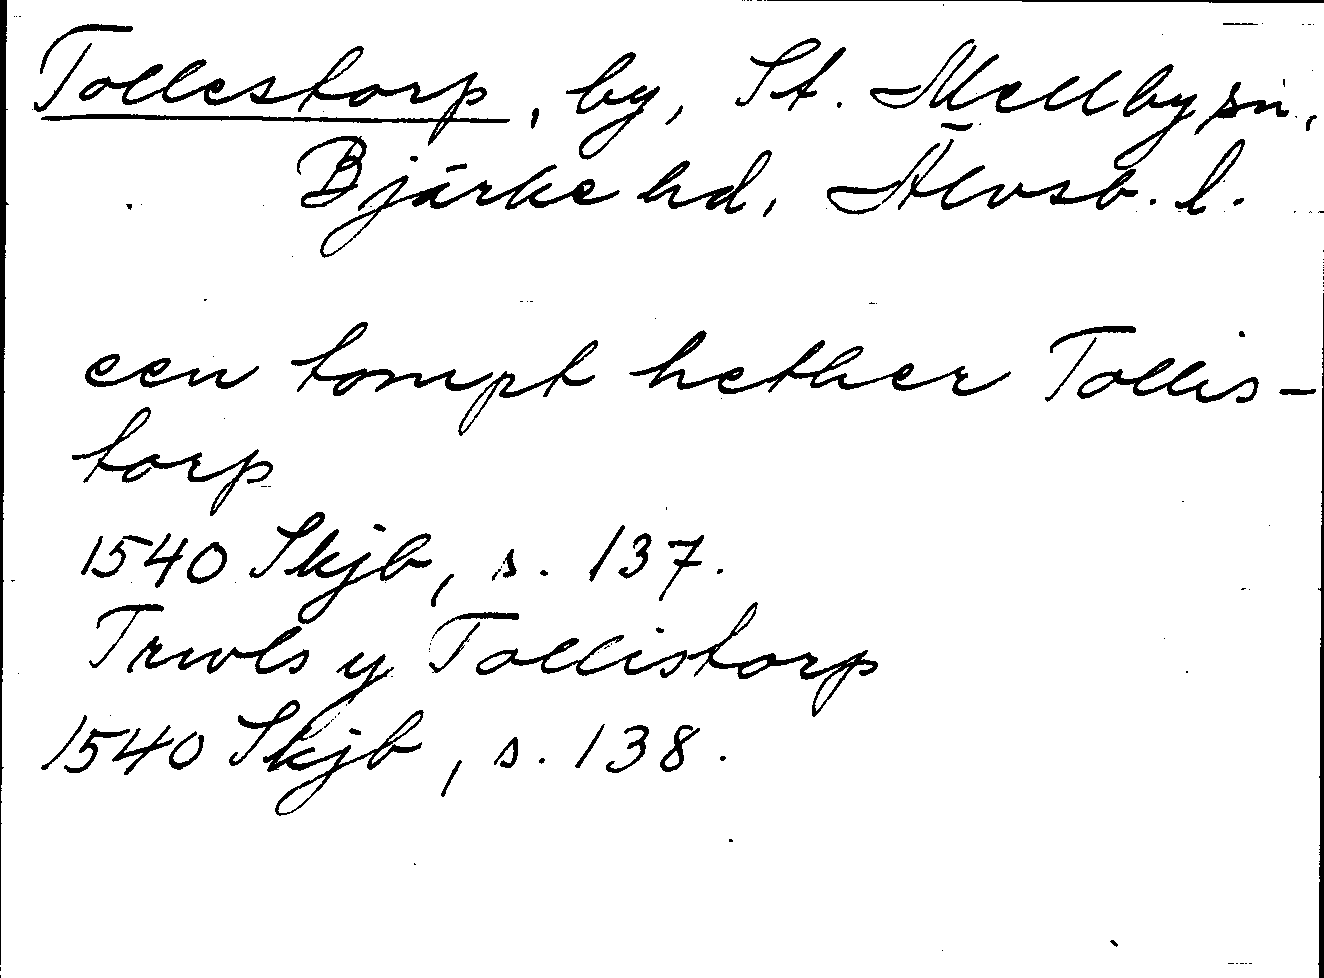 Tollestorp, by, St. Mellby sn,
Bjärke hd, Älvsb. l.
een tompt hether Tollis-
torp
1540 Skjb, s. 137.
Trwls y Tollistorp
1540 Skjb, s. 138.